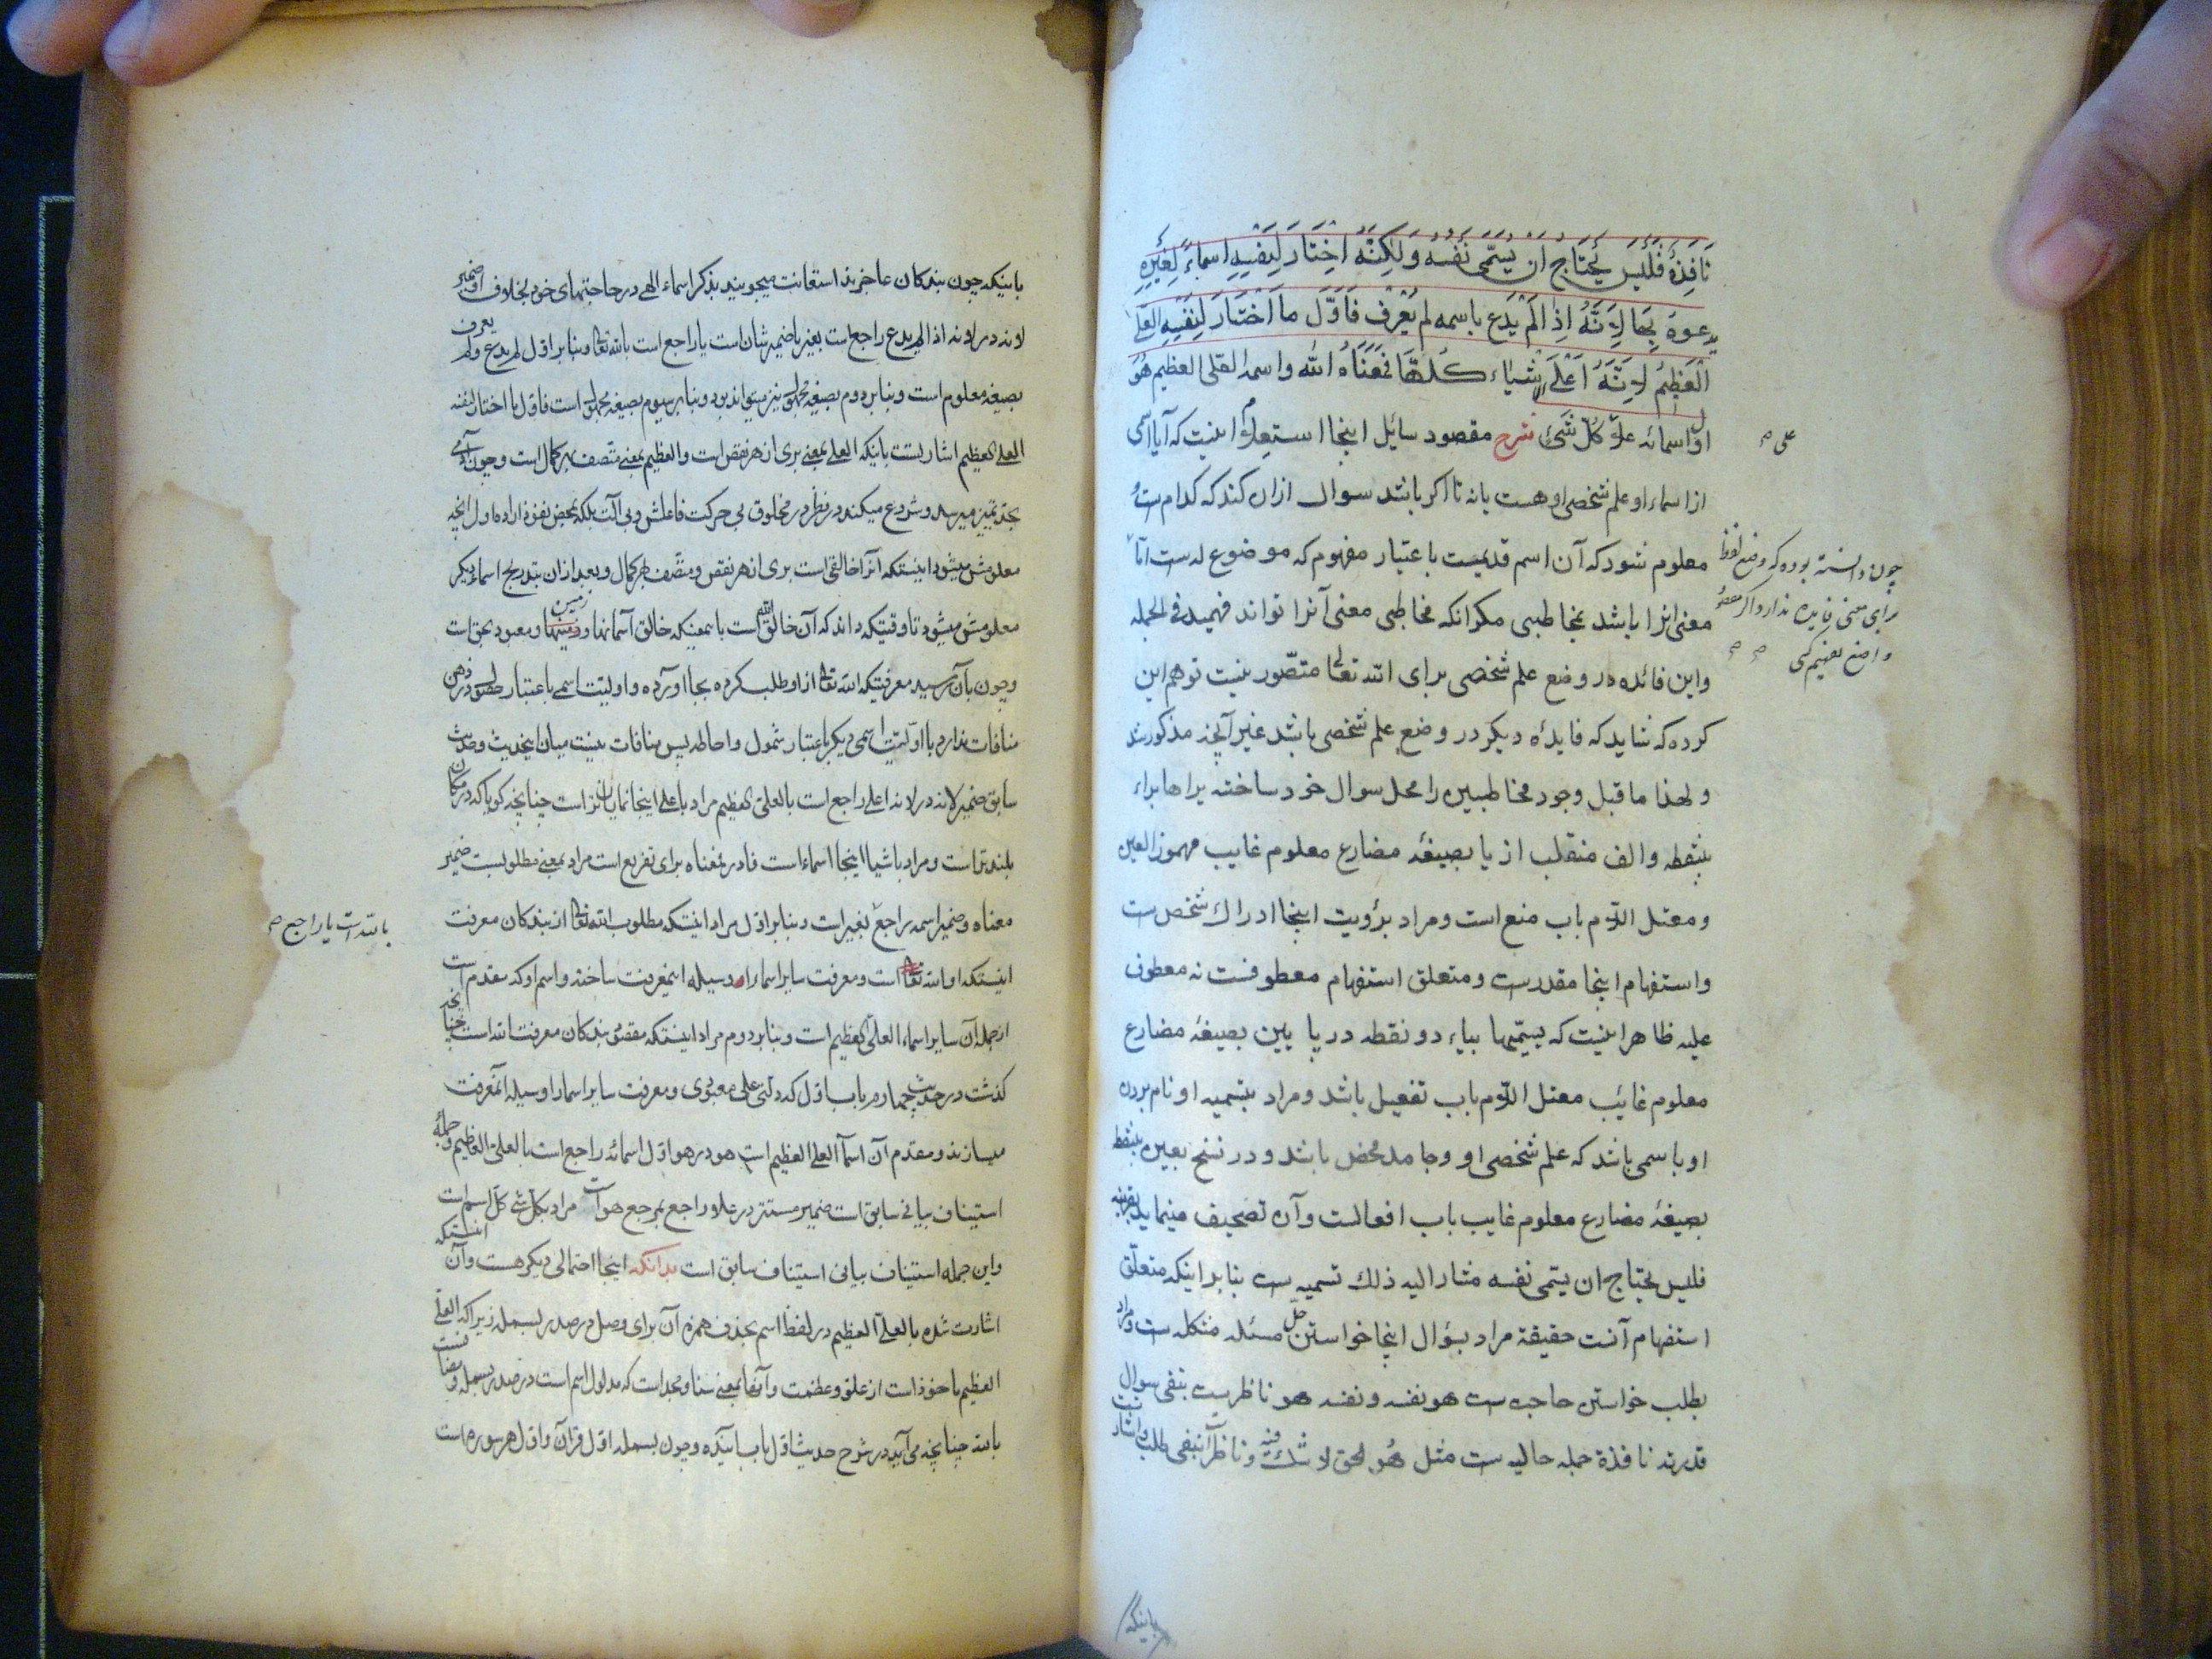 نَافِذَةٌ فَلَيْسَ يَحْتَاجُ اَنْ يُسَمِّىَ نَفْسَهُ وَلٰكِنَّهُ اخْتَارَ لِنَفْسِهِ اسماءً لِغَيْرِهِ
يدعوهُ بِهَا لِاَنَّهُ اِذَا لَمْ يُدْعَ باسمه لم يُعْرَف فَاَوَّلُ ما اخْتَارَ لِنَفْسِهِ العلىّ
الْعَظِيمُ لِاَنَّهُ اَعْلَى الاشياء كُلِّهَا فَمَعْنَاهُ الله واسمه العلى العظيم هُوَ
اوّل اسمائه علا كُلّ شَىْءٍ شرح مقصود سائل اينجا استعلام اينست كه آيا اسمى
از اسماء او علم شخصى او هست يا نه تا اكر باشد سوال ازان كند كه كدام ست و
معلوم شود كه آن اسم قديمست باعتبار مفهوم كه موضوع له ست اتا
معنى انرا باشد بمخاطبى مكر آنكه مخاطبى معنى آنرا تواند فهميد فى الجمله
واين فائده در وضع علم شخصى براى الله تعالى متصّور نيست توهم اين
كرده كه شايد كه فايدهٔ ديكر در وضع علم شخصى باشد غير آنچه مذكور شد
و لهذا ما قبل وجود مخاطبين را محل سوال خود ساخته يراها براء
بينقطه والف منقلب از يا بصيغهٔ مضارع معلوم غايب مهموز العين
و معتل اللام باب منع است ومراد برؤيت اينجا ادراك شخص ست
واستفهام اينجا مقدرست و متعلق استفهام معطوفست نه معطوف
عليه ظاهر اينست كه يسمّيها بياء دو نقطه در پايين بصيغهٔ مضارع
معلوم غائب معتل اللام باب تفعيل باشد ومراد بتسميه او نام بردن
او باسمى باشد كه علم شخصى او وجامد محض باشد و در نسخ بعين بينقط
بصيغهٔ مضارع معلوم غايب باب افعالست وآن تصحيف مينمايد بقرينه
فليس يحتاج ان يسمى نفسه مشار اليه ذلك تسميه ست بنابر اينكه متعلّق
استفهام آنست حقيقة مراد بسؤال اينجا خواستن حل مسئله مشكله ست ومراد
بطلب خواستن حاجت ست هو نفسه ونفسه هو ناظرست بنفى سوال
قدرته نافذة جمله حاليه ست مثل هُو الحق لا شك فيه وناظر است بنفى طلب واشارتست
على م
چون دانسته بوده كه وضع لفظ
براى معنى فايده ندارد اكر مقصود
واضع تفهيم كسى م م
باينكه
باينكه چون بندكان عاجزند استعانت ميجويند بذكر اسماء الهى در حاجتهاى خود بخلاف او ضمير
لانه در لانه اذا لم يدع راجع است بغير يا ضمير شان است يا راجع است بالله تعالى وبنابر اوّل لم يدع ولم يعرف
بصيغهٔ معلوم است وبنابر دوم بصيغهٔ مجهول نيز ميتواند بود وبنابر سيوم بصيغهٔ مجهول است فاوّل ما اختار لنفسه
العلى العظيم اشارتست باينكه العلى بمعنى برى از هر نقص است والعظيم بمعنى متصف بهر كمال است وچون آدمى
بحد تميز ميرسد وشروع ميكند در نظر در مخلوق بى حركت فاعلش وبى آلت بلكه بمحض نفوذ اراده اول آنچه
معلومش ميشود اينستكه آنرا خالقى است برى از هر نقص ومتصف بهر كمال وبعد ازان بتدريج اسماء ديكر
معلومش ميشود تا وقتيكه داند كه آن خالق الله است باسمعنيكه خالق آسمانها وزمينها ومعبود بحق است
وچون بآن رسيد معرفتيكه الله تعالى ازو طلب كرده بجا آورده و اوليّت اسمى باعتبار حصول در ذهن
منافات ندارد با اوليّت اسمى ديكر باعتبار شمول واحاطه پس منافات نيست ميان اينحديث وحديث
سابق ضمير لانه در لانه اعلى راجع است بالعلى العظيم مراد باعلى اينجا نمايان تر است چنانچه كويا كه در مكان
بلند تر است ومراد باشيا اينجا اسماء است فا در فمعناه براى تفريع است مراد بمعنى مطلوبست ضمير
معناه وضمير اسمه راجع بغير است وبنابر اوّل مراد اينستكه مطلوب الله تعالى از بندكان معرفت
اينستكه او الله تعالى است ومعرفت ساير اسماء را وسيله اينمعرفت ساخته واسم او كه مقدم است
از جمله آن ساير اسماء العلىّ العظيم است وبنابر دوم مراد اينستكه مقصود بندكان معرفت الله است چنانچه
كذشت در حديث چهارم باب اوّل كه دلنى على معبودى ومعرفت ساير اسما را وسيله آنمعرفت
ميسازند ومقدم آن اسما العلى العظيم است هو در هو اوّل اسمائه راجع است بالعلى العظيم وجمله
استيناف بيانى سابق است ضمير مستتر در علا راجع بمرجع هو است مراد بكل شى كل اسم است
واين جمله استيناف بيانى استيناف سابق است بدانكه اينجا احتمالى ديكر هست وآن اينستكه
اشارت شده بالعلىّ العظيم در لفظ اسم بحذف همزه آن براى وصل در صدر بسمله زيرا كه العلى
العظيم ماخوذ است از علو وعظمت وآنها بمعنى سنا ومجد است كه مدلول اسم است در صدر بسمله
بالله چنانچه مى آيد در شرح حديث اوّل باب آينده وچون بسمله اوّل قرآن و اوّل هر سوره است
بالله است يا راجع م